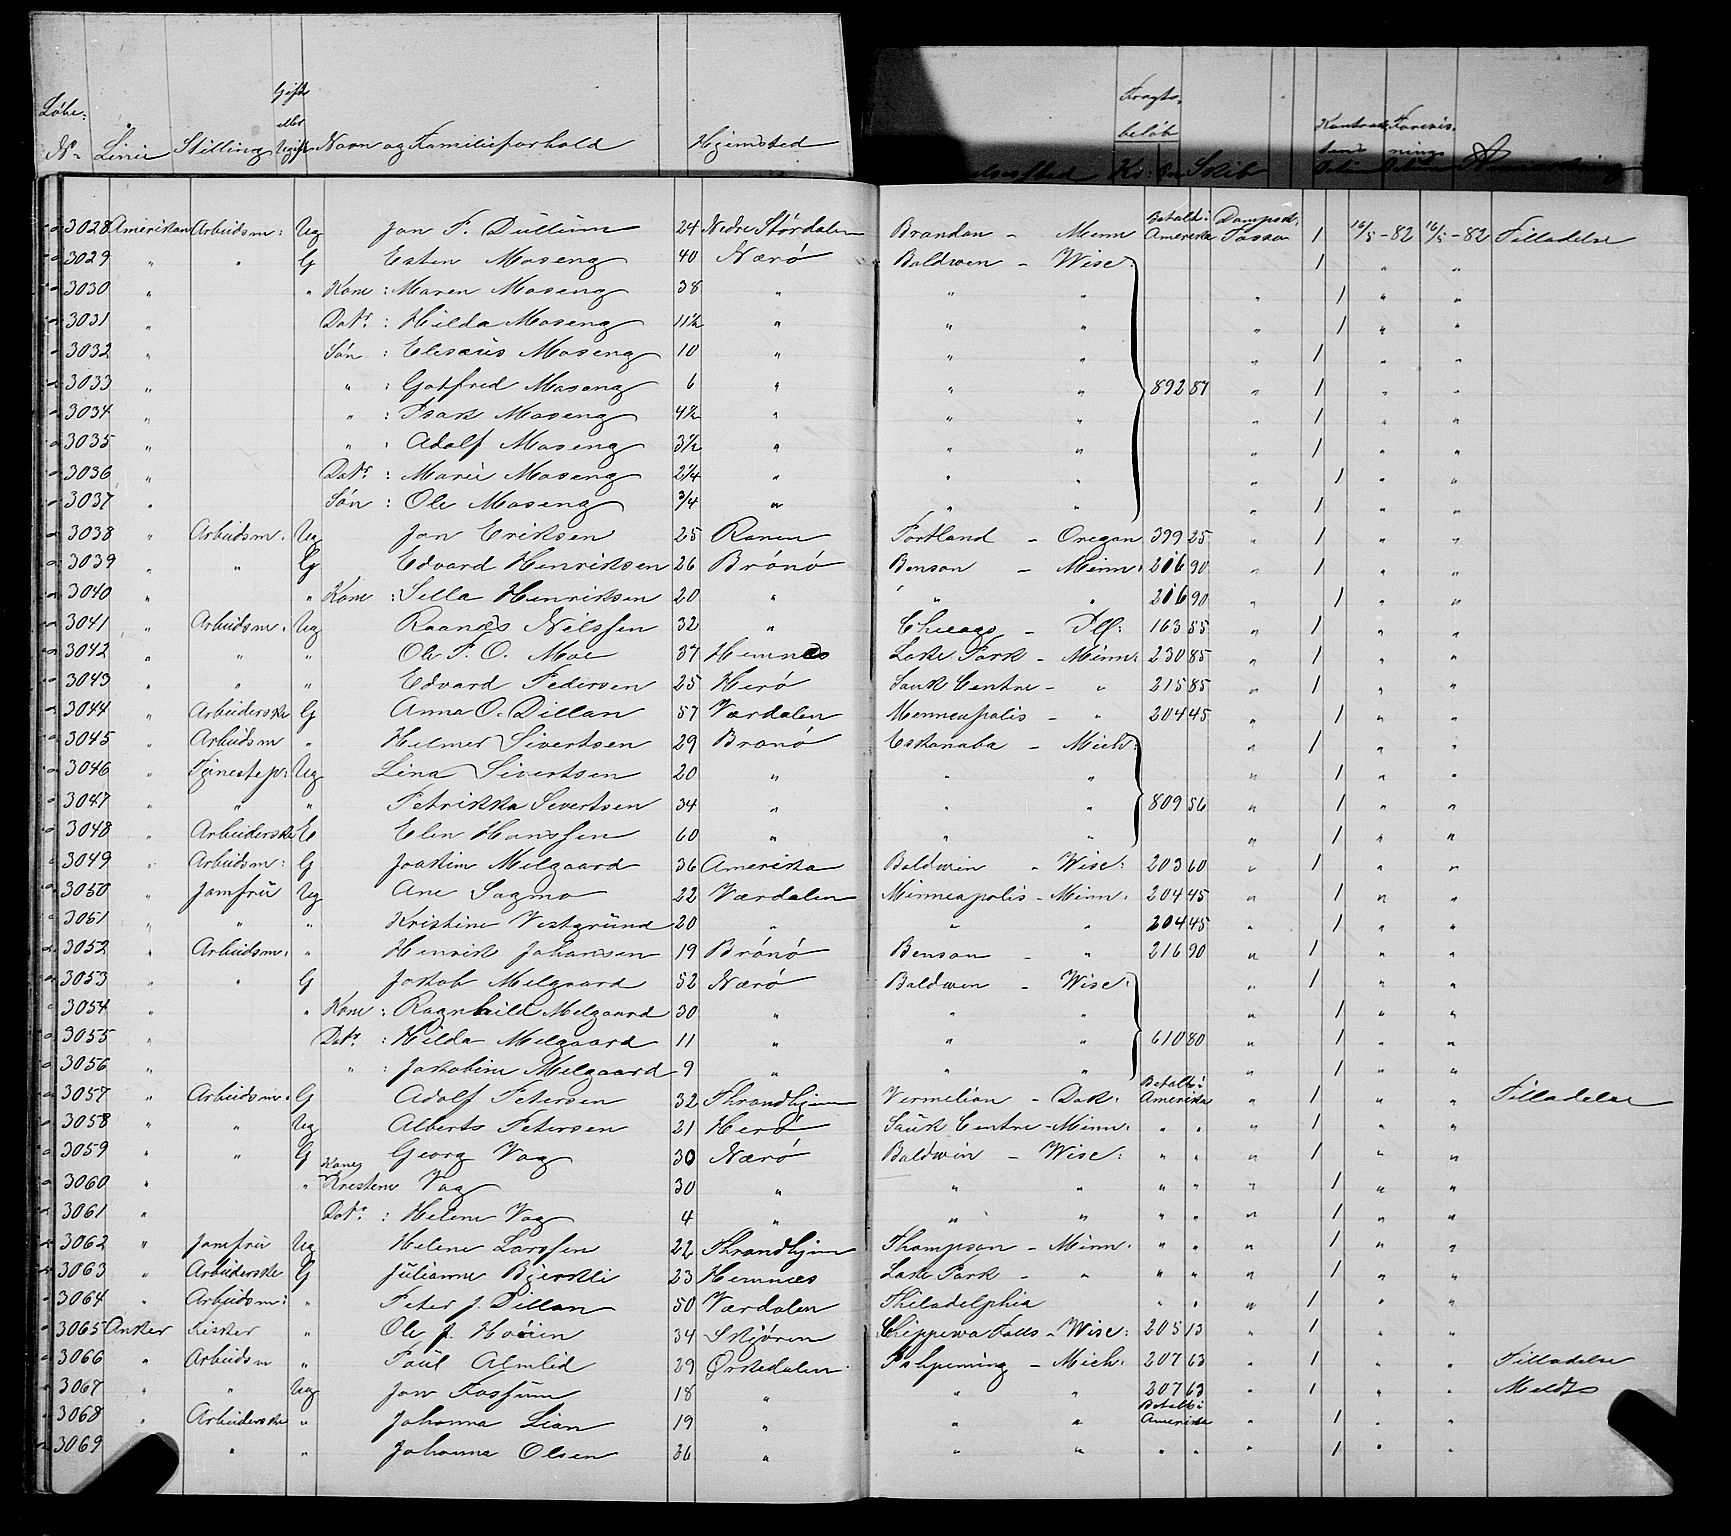 Løbe: Gift Fragts.
№ Linie Stilling eller Ugift Navn og Familieforhold Hjemsted beløb Kr: Skib Kontrak Forevis. nings
3028 Amerikan Arbeidsm: Ug Jon F. Dullum 24 Nedre Størdalen Brandon - Minn Betalt i Amerika Dampsk. Tasso 1 16/5-82 16/5-82 Tilladelse
3029 " " G Esten Moseng 40 Nærø Baldwen - Wisc: 1 " "
3030 " " Kone: Maren Moseng 38 " " " " 1 " "
3031 " Datr: Hilda Moseng 11½ " " " " 1 " "
3032 " Søn: Elesæus Moseng 10 " " " " 1 " "
3033 " " : Gotfred Moseng 6 " " " 892 87 " 1 " "
3034 " " : Isak Moseng 4½ " " " " 1 " "
3035 " " : Adolf Moseng 3½ " " " " 1 " "
3036 " Datr: Marie Moseng 2¼ " " " " 1 " "
3037 " Søn: Ole Moseng ¾ " " " " 1 " "
3038 " Arbeidsm. Ug Jon Eriksen 25 Ranen Portland - Oregon 399 25 " 1 " "
3039 " " G Edvard Henriksen 26 Brønø Benson - Minn: 216 90 " 1 " "
3040 " " Kone: Sella Henriksen 20 " " " 216 90 " 1 " "
3041 " Arbeidsm: Ug Raanæs Nilssen 32 " Chicago - Ill: 163 55 " 1 " "
3042 " " " Ole P. O. Moe 37 Hemnæs Lake Park - Minn: 230 85 " 1 " "
3043 " " " Edvard Pedersen 25 Herø Sauk Centre - " 215 85 " 1 " "
3044 " Arbeiderske G Anna O. Dillan 57 Værdalen Menneapolis - " 204 45 " 1 " "
3045 " Arbeidsm " Helmer Sivertsen 29 Brønø Eskanaba - Mich: " 1 " "
3046 " Tjenestep: Ug Lina Sivertsen 20 " " " " 1 " "
3047 " " " Petrikka Sivertsen 34 " " " 809 56 " 1 " "
3048 " Arbeiderske E Elen Hanssen 60 " " " " 1 " "
3049 " Arbeidsm: G Joakim Melgaard 36 Amerika Baldwin - Wisc: 203 60 " 1 " "
3050 " Jomfru Ug Ane Sagmo 22 Værdalen Minneapolis - Minn: 204 45 " 1 " "
3051 " " " Kristine Vestgrund 20 " " " 204 45 " 1 " "
3052 " Arbeidsm: " Henrik Johansen 19 Brønø Benson - " 216 90 " 1 " "
3053 " " G Jakob Melgaard 52 Nærø Baldwen - Wisc: " 1 " "
3054 " " Kone: Ragnhild Melgaard 30 " " " " 1 " "
3055 " Datr: Hilda Melgaard 11 " " " 610 80 " 1 " "
3056 " " : Jakobine Melgaard 9 " " " " 1 " "
3057 " Arbeidsm: G Adolf Petersen 32 Throndhjem Vermilion - Dak: Betalt i Amerika " 1 " " Tilladelse
3058 " " Ug Alberts Petersen 21 Herø Sauk Centre - Minn: " " " 1 " "
3059 " " G Georg Vag 30 Nærø Baldwin - Wisc: " " " 1 " "
3060 " " Kone Krestene Vag 30 " " " " " " 1 " "
3061 " Datr: Helene Vag 4 " " " " " " 1 " "
3062 " Jomfru Ug Helene Larssen 22 Throndhjem Thompson - Minn: " " " 1 " "
3063 " Arbeiderske G Julianne Bjerkli 23 Hemnæs Lake Park - " " " " 1 " "
3064 " Arbeidsm: " Peter J. Dillan 50 Værdalen Philadelphia " " " 1 " "
3065 Anker Fisker " Ole J. Hoøien 34 Skjøren Chippewa Falls - Wisc: 205 13 " 1 " "
3066 " Arbeidsm " Paul Almlid 29 Ørkedalen Ishpeming - Mich: 207 63 " 1 " " Tilladelse
3067 " " Ug Jon Fossum 18 " " " 207 63 " 1 " " Meldt
3068 " Arbeiderske " Johanna Lian 19 " " " Betalt i Amerika " 1 " "
3069 " " Johanna Olsen 36 " " " " " " 1 " "